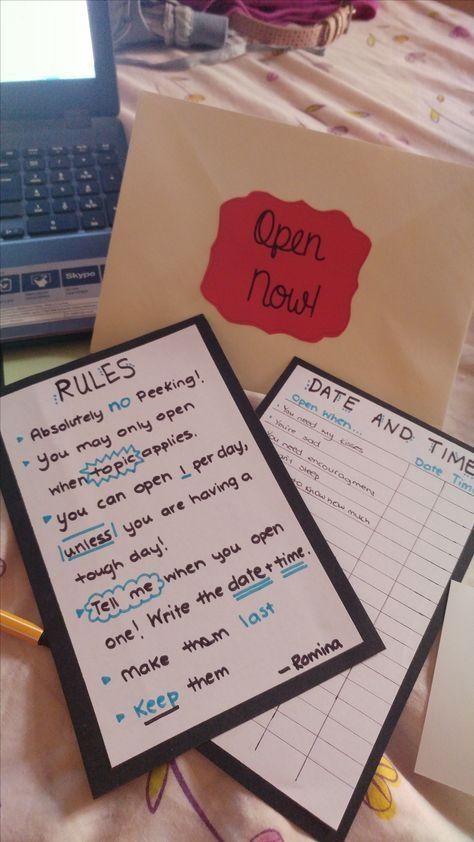 Skype
Open
Now!
RULES
Absolutely no Peeking!
You may only open
when topic applies.
you can open 1 per day,
unless you are having a
tough day!
Tell me when you open
one! Write the date + time.
make them last
Keep them
- Romina
DATE AND TIME
Open when...
Date Time
You need my kisses
You're sad
you need encouragment
sleep
to know how much